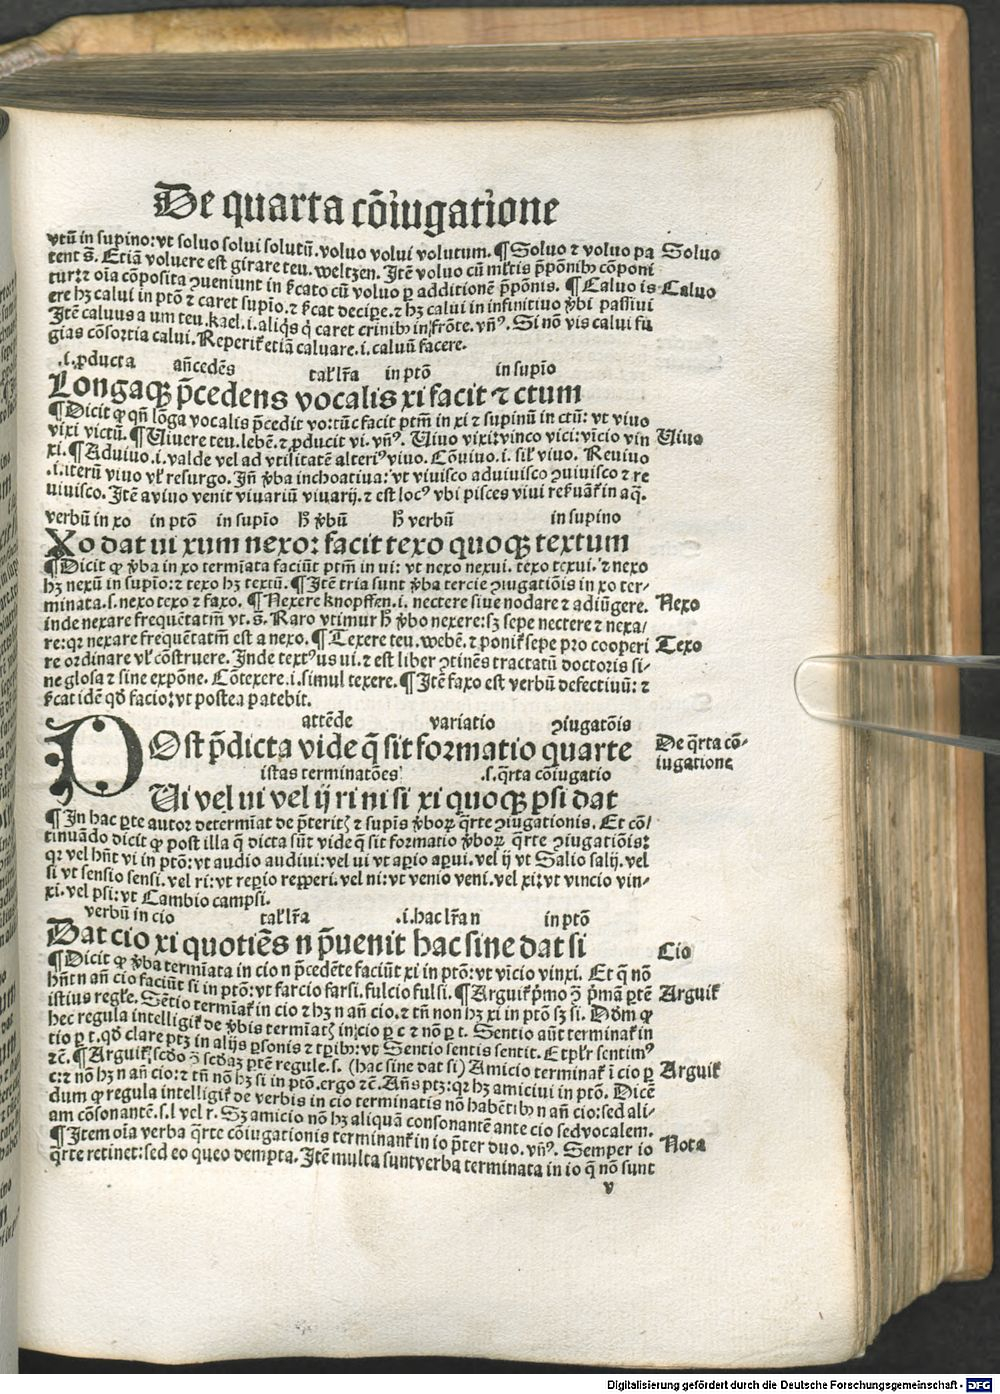 De quarta cõiugatione
vtũ in supino: vt soluo solui solutũ. voluo volui volutum. ¶ Soluo ⁊ voluo pa Soluo
tent s̃. Etiã voluere est girare teu. weltzen. Itẽ voluo cũ ml̃tis p̃põnib⁹ cõponi
tur: ⁊ oĩa cõposita ꝯueniunt in s̃cato cũ voluo ꝑ additionẽ p̃põnis. ¶ Caluo is Caluo
ere hꝫ calui in ptõ ⁊ caret supĩo. ⁊ s̃cat decipe. ⁊ hꝫ calui in infinitiuo v̾bi passiui
Itẽ caluus a um teu. kael. i. aliq̃s q̃ caret crinib⁹ in frõte. vñ⁹. Si nõ vis calui fu
gias cõsortia calui. Reperit̃ etiã caluare. i. caluũ facere.
.i. ꝓducta añcedẽs tal' lr̃a in ptõ in supĩo
Longaqꝫ p̃cedens vocalis xi facit ⁊ ctum
¶ Dicit ꝙ qñ lõga vocalis p̃cedit vo: tũc facit ptm̃ in xi ⁊ supinũ in ctũ: vt viuo
vixi victũ. ¶ Uiuere teu. lebẽ. ⁊ ꝓducit vi. vñ⁹. Uiuo vixi: vinco vici: vĩcio vin Uiuo
xi. ¶ Adviuo. i. valde vel ad vtilitatẽ alteri⁹ viuo. Cõuiuo. i. sil' viuo. Reuiuo
.i. iterũ viuo vl' resurgo. Iñ v̾ba inchoatiua: vt viuisco aduiuisco ꝯuiuisco ⁊ re
uiuisco. Itẽ a viuo venit viuariũ viuarij. ⁊ est loc⁹ vbi pisces viui ref̃uãt̃ in aq̃.
verbũ in xo in ptõ in supĩo h̃ v̾bũ h̃ verbũ in supino
Xo dat ui xum nexo: facit texo quoqꝫ textum
¶ Dicit ꝙ v̾ba in xo termĩata faciũt ptm̃ in ui: vt nexo nexui. texo texui. ⁊ nexo
hꝫ nexũ in supĩo: ⁊ texo hꝫ textũ. ¶ Itẽ tria sunt v̾ba tercie ꝯiugatiõis in xo ter-
minata. s. nexo texo ⁊ faxo. ¶ Nexere knopffen. i. nectere siue nodare ⁊ adiũgere. Nexo
inde nexare frequẽtatm̃ vt. s̃. Raro vtimur h̃ v̾bo nexere: sꝫ sepe nectere ⁊ nexa/
re: qꝛ nexare frequẽtatm̃ est a nexo. ¶ Texere teu. webẽ. ⁊ ponit̃ sepe pro cooperi Texo
re ordinare vl' cõstruere. Inde text⁹ us ui. ⁊ est liber ꝯtinẽs tractatũ doctoris si-
ne glosa ⁊ sine expõne. Cõtexere. i. simul texere. ¶ Itẽ faxo est verbũ defectiuũ: ⁊
s̃cat idẽ qd̾ facio: vt postea patebit.
attẽde variatio ꝯiugatõis
POst p̃dicta vide q̃ sit formatio quarte De q̃rta cõ-
iugatione
istas terminatões .s. q̃rta cõiugatio
Ui vel ui vel ij ri ni si xi quoqꝫ psi dat
¶ In hac ꝑte autor determĩat de p̃teritꝭ ⁊ supĩs v̾boꝝ q̃rte ꝯiugationis. Et cõ/
tinuãdo dicit ꝙ post illa q̃ dicta sũt vide q̃ sit formatio v̾boꝝ q̃rte ꝯiugatiõis:
qꝛ vel hñt vi in ptõ: vt audio audiui: vel ui vt aꝑio aꝑui. vel ij vt Salio salij. vel
si vt sensio sensi. vel ri: vt reꝑio reꝑperi. vel ni: vt venio veni. vel xi: vt vincio vin-
xi. vel psi: vt Cambio campsi.
verbũ in cio tal' lr̃a .i. hac lr̃a n in ptõ
Dat cio xi quotiẽs n p̃uenit hac sine dat si Cio
¶ Dicit ꝙ v̾ba termĩata in cio n p̃cedẽte faciũt xi in ptõ: vt vĩcio vinxi. Et q̃ nõ
hñt n añ cio faciũt si in ptõ: vt farcio farsi. fulcio fulsi. ¶ Arguit̃ p̃mo ꝯ̃ p̃mã ꝑtẽ Arguit̃
istius regl'e. Sẽtio termĩat̃ in cio ⁊ hꝫ n añ cio. ⁊ tñ non hꝫ xi in ptõ sꝫ si. Dd̾m ꝙ
hec regula intelligit̃ de v̾bis termĩatꝭ in cio ꝑ c ⁊ nõ ꝑ t. Sentio aũt terminat̃ in
tio ꝑ t. qd̾ clare ptꝫ in alijs ꝑsonis ⁊ tꝑib⁹: vt Sentio sentis sentit. Et pl'r sentim⁹
⁊c̃. ¶ Arguit̃ scd̾o ꝯ̃ scd̾aꝫ ꝑtẽ regule. s. (hac sine dat si) Amicio terminat̃ ĩ cio ꝑ Arguit̃
c: ⁊ nõ hꝫ n añ cio: ⁊ tñ nõ hꝫ si in ptõ. ergo ⁊c̃. Añs ptꝫ: qꝛ hꝫ amiciui in ptõ. Dicẽ
dum ꝙ regula intelligit̃ de verbis in cio terminatis nõ habẽtib⁹ n añ cio: sed ali-
am cõsonantẽ. s. l vel r. Sꝫ amicio nõ hꝫ aliquã consonantẽ ante cio sed vocalem.
¶ Item oĩa verba q̃rte cõiugationis terminant̃ in io p̃ter duo. vñ⁹. Semper io Nota
q̃rte retinet: sed eo queo dempta. Itẽ multa sunt verba terminata in io q̃ nõ sunt
v
Digitalisierung gefördert durch die Deutsche Forschungsgemeinschaft - DFG